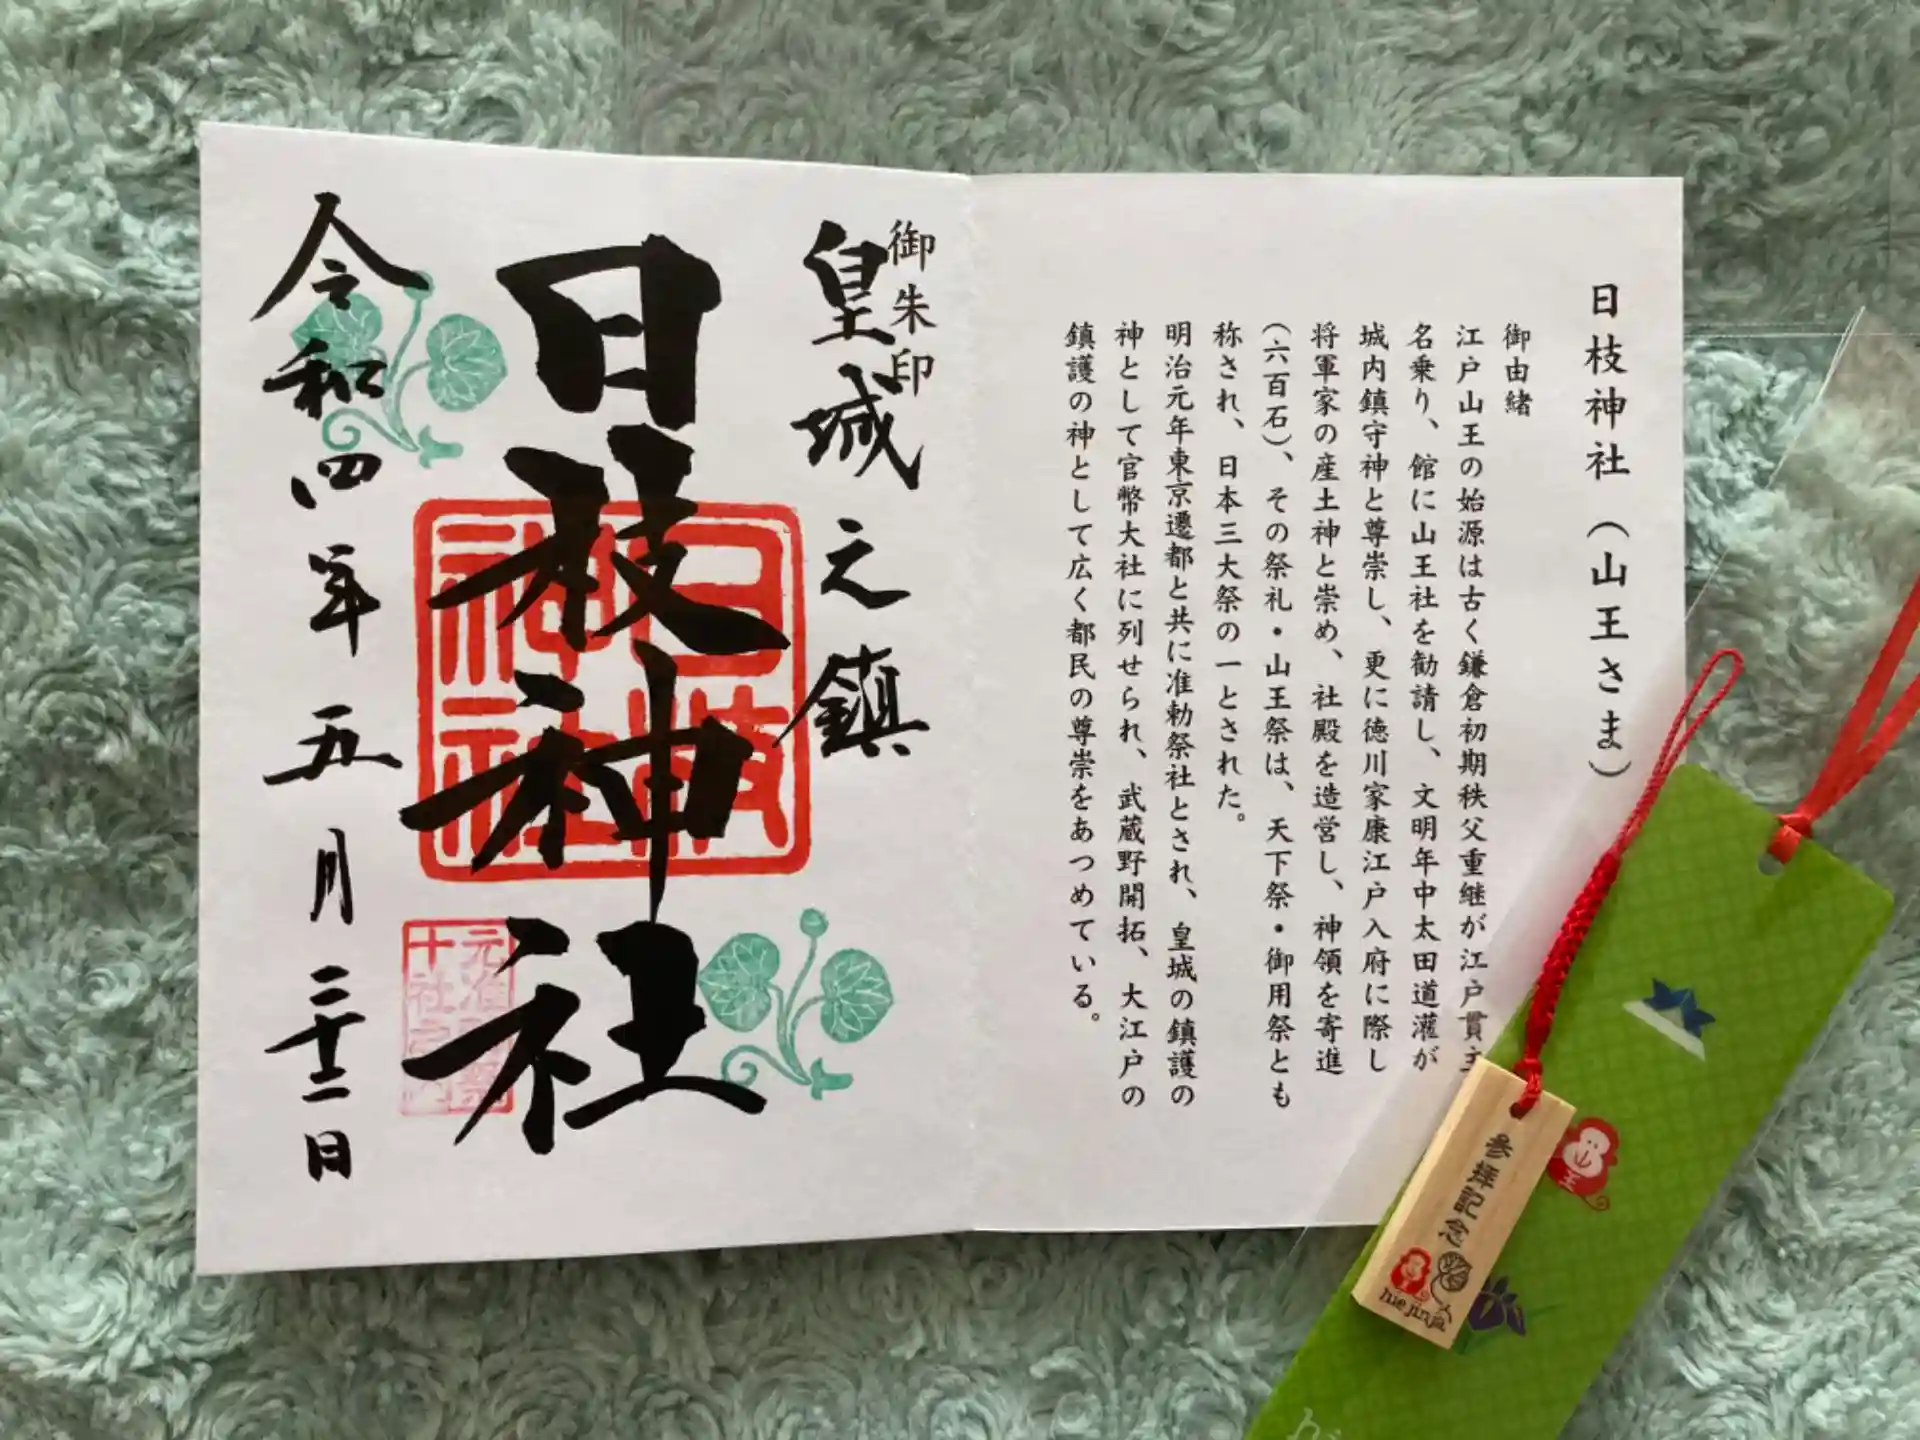 日枝神社(山王さま)
御由緒
江戸山王の始源は古く鎌倉初期秩父重継が江戸貫主
名乗り、館に山王社を勧請し、文明年中太田道灌が
城内鎮守神と尊崇し、更に徳川家康江戸入府に際し
将軍家の産土神と崇め、社殿を造営し、神領を寄進
(六百石)、その祭礼・山王祭は、天下祭・御用祭とも
称され、日本三大祭の一とされた。
明治元年東京遷都と共に准勅祭社とされ、皇城の鎮護の
神として官幣大社に列せられ、武蔵野開拓、大江戸の
鎮護の神として広く都民の尊崇をあつめている。
御朱印
皇城之鎮
日枝神社
日枝
神社
元准
十社之内
令和四年五月二十二日
参拝記念
hie jinja
山王